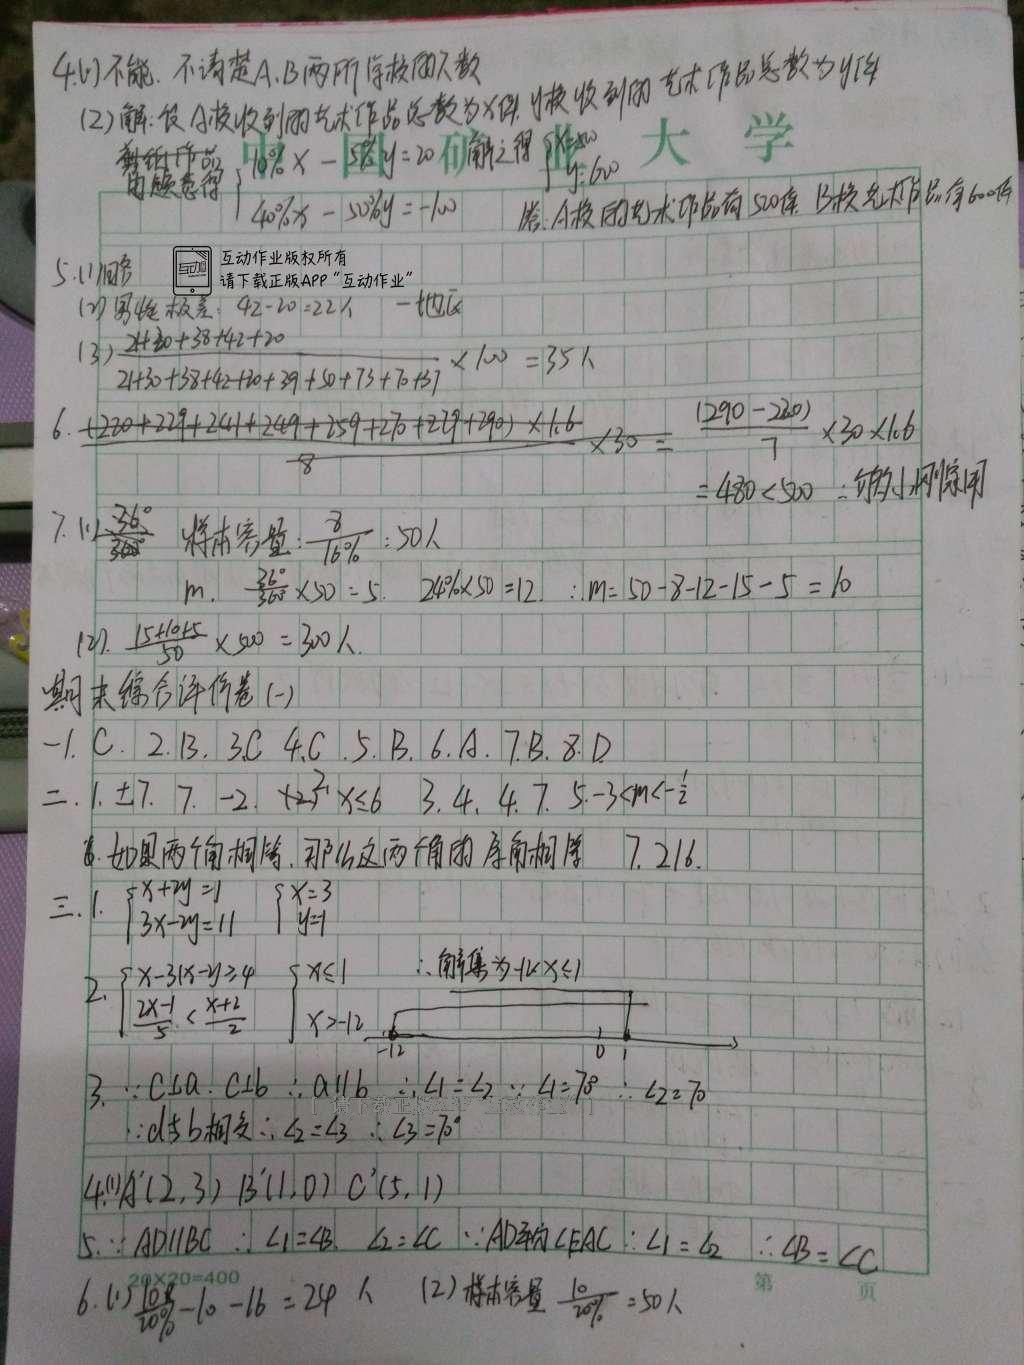 4.(1)不能. 不清楚A、B两所学校的人数
(2)解:设A校收到的艺术作品总数为x件, y校收到的艺术作品总数为y件
中国矿业大学
由题意得 10%x-5%y=20 解之得 x=500
40%x-50%y=-100 y=600
答:A校的艺术作品有500件 B校艺术作品有600件
互动作业版权所有
请下载正版APP“互动作业”
5.(1)
(2)男性极差: 42-20=22人 一地区
(3) 21+30+38+42+20 / 21+30+38+42+20+39+50+73+70+37 ×100 =35人
6. (220+229+241+249+259+270+279+290)×1.6 / 8 ×30 = (290-220) / 7 ×30×1.6
=480<500 ∴够小刚家用
7.(1) 36°/360° 样本容量: 8/16% =50人
m. 36°/360° ×50=5. 24%×50=12. ∴m=50-8-12-15-5=10
(2). 15+10+5 / 50 ×500=300人.
期末综合评价卷(一)
一1. C. 2. B. 3. C 4. C. 5. B. 6. A. 7. B. 8. D.
二. 1. ±7. 7. -2. x≤6 3. 4. 4. 7. 5. -3<m<-1/2
6. 如果两个角相等,那么这两个角的余角相等 7. 216.
三. 1. x+2y=1 x=3
3x-2y=11 y=-1
2. x-3(x-2)≥4 x≤1 ∴解集为-12<x≤1
2x-1 / 5 < x+2 / 2 x>-12
-12 0 1
3. ∵c⊥a. c⊥b ∴a∥b ∴∠1=∠2 ∵∠1=70° ∴∠2=70
∵d与b相交∴∠2=∠3 ∴∠3=70°
4.(1)A'(2,3) B'(1,0) C'(5,1)
5. ∵AD∥BC ∴∠1=∠B. ∠2=∠C ∵AD平分∠EAC ∴∠1=∠2 ∴∠B=∠C
20×20=400 第 页
6.(1) 10/20% -10-16=24人 (2)样本容量 10/20% =50人